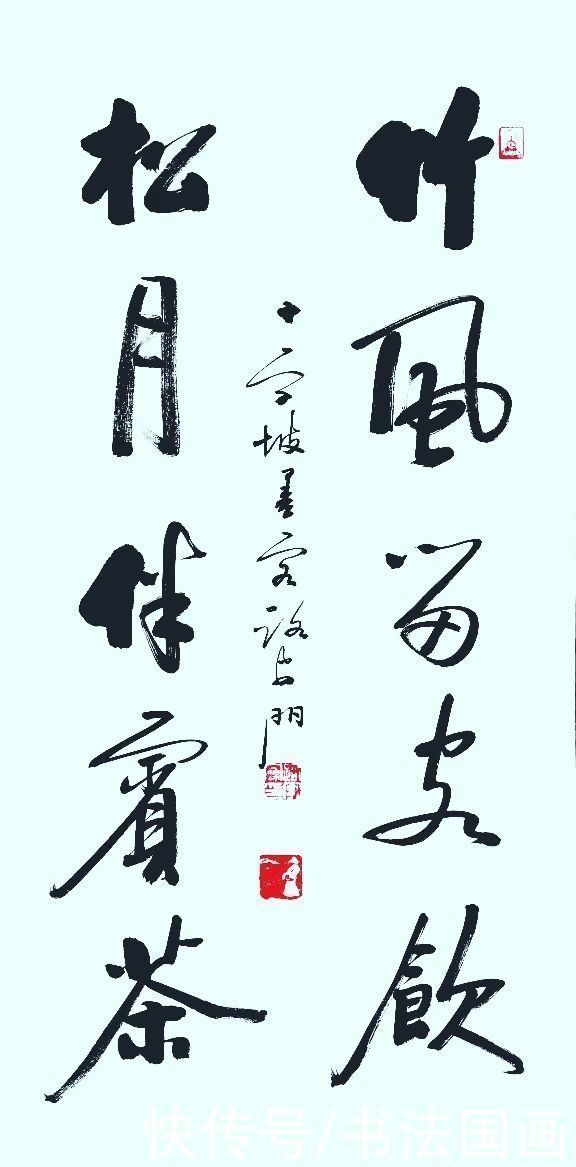 竹風留客飲
松月伴賓茶
坡墨客路門
快传号/书法国画